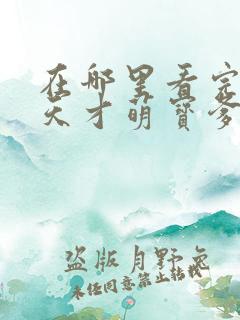 在哪里看完
天才萌宝爹
盗版月野兔
未经同意禁止转载